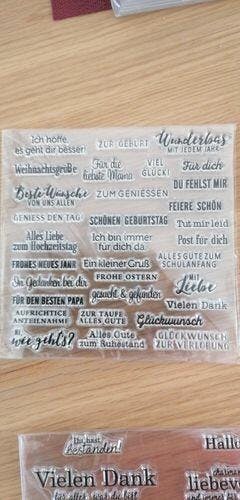 Ich hoffe,
es geht dir besser!
ZUR GEBURT
Wunderbar
MIT JEDEM JAHR
Weihnachtsgrüße
Für die
liebste Mama
VIEL
GLÜCK!
Für dich
DU FEHLST MIR
Beste Wünsche
VON UNS ALLEN
ZUM GENIESSEN
FEIERE SCHÖN
GENIESS DEN TAG
SCHÖNEN GEBURTSTAG
Tut mir leid
Alles Liebe
zum Hochzeitstag
Ich bin immer
für dich da
Post für dich
ALLES GUTE ZUM
SCHULANFANG
FROHES NEUES JAHR
Ein kleiner Gruß
In Gedanken bei dir
FROHE OSTERN
MIT
Liebe
gesucht & gefunden
FÜR DEN BESTEN PAPA
Vielen Dank
AUFRICHTIGE
ANTEILNAHME
ZUR TAUFE
ALLES GUTE
Glückwunsch
Hi,
wie geht's?
Alles Gute
zum Ruhestand
GLÜCKWUNSCH
ZUR VERLOBUNG
Du hast
bestanden!
Vielen Dank